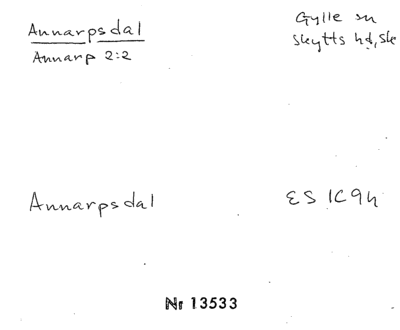 Annarpsdal
Annarp 2:2
Gylle sn
Skytts hd, Sk
Annarpsdal
ES 1C9h
Nr 13533